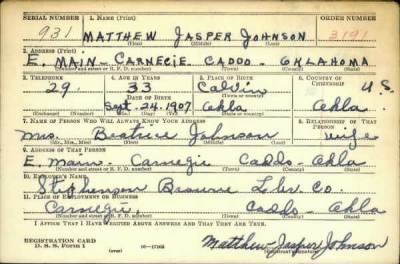 SERIAL NUMBER 1. NAME (Print) ORDER NUMBER
931 MATTHEW JASPER JOHNSON 3191
(First) (Middle) (Last)
2. ADDRESS (Print)
E. MAIN - CARNEGIE CADDO - OKLAHOMA
(Number and street or R. F. D. number) (Town) (County) (State)
3. TELEPHONE 4. AGE IN YEARS 5. PLACE OF BIRTH 6. COUNTRY OF CITIZENSHIP
29. 33 Calvin U.S.
DATE OF BIRTH (Town or county)
Sept. 24, 1907 Okla Okla.
(Mo.) (Day) (Yr.) (State or country)
7. NAME OF PERSON WHO WILL ALWAYS KNOW YOUR ADDRESS 8. RELATIONSHIP OF THAT PERSON
Mrs. Beatrice Johnson wife
(Mr., Mrs., Miss) (First) (Middle) (Last)
9. ADDRESS OF THAT PERSON
E. Main. Carnegie Caddo - Okla
(Number and street or R. F. D. number) (Town) (County) (State)
10. EMPLOYER'S NAME
Stephenson Browne Lbr. Co.
11. PLACE OF EMPLOYMENT OR BUSINESS
Carnegie, Caddo - Okla
(Number and street or R. F. D. number) (Town) (County) (State)
I AFFIRM THAT I HAVE VERIFIED ABOVE ANSWERS AND THAT THEY ARE TRUE.
REGISTRATION CARD
D. S. S. Form 1 (over) Matthew Jasper Johnson
(Registrant's signature)